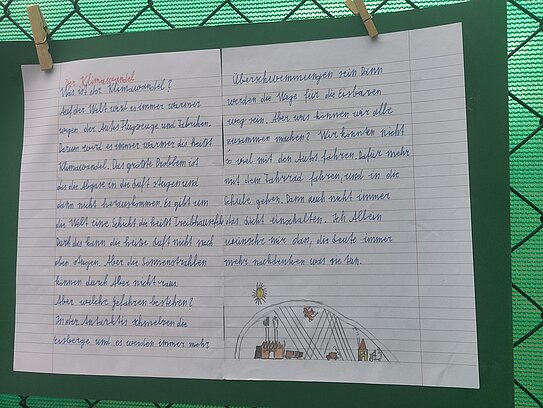 Der Klimawandel
Was ist der Klimawandel?
Auf der Welt wird es immer wärmer
wegen der Autos Flugzeuge und Fabriken.
Darum wird es immer wärmer das heißt
Klimawandel. Das größte Problem ist
das die Abgase in die Luft steigen und
dann nicht herauskommen. Es gibt um
die Welt eine Schicht die heißt Treibhauseffekt
Durch das kann die heiße Luft nicht nach
oben steigen. Aber die Sonnenstrahlen
können durch Aber nicht raus.
Aber welche gefahren bestehen?
In der Antarktis schmelzen die
Eisberge und es werden immer mehr
Überschwemmungen sein Dann
werden die Wege für die Eisbären
weg sein. Aber was können wir alle
zusammen machen? Wir könnten nicht
so viel mit den Autos fahren. Dafür mehr
mit dem Fahrrad fahren, und in die
Schule gehen. Dann auch nicht immer
das Licht einschalten. Ich Allein
wünsche mir das, die leute immer
mehr nachdenken was sie tun.